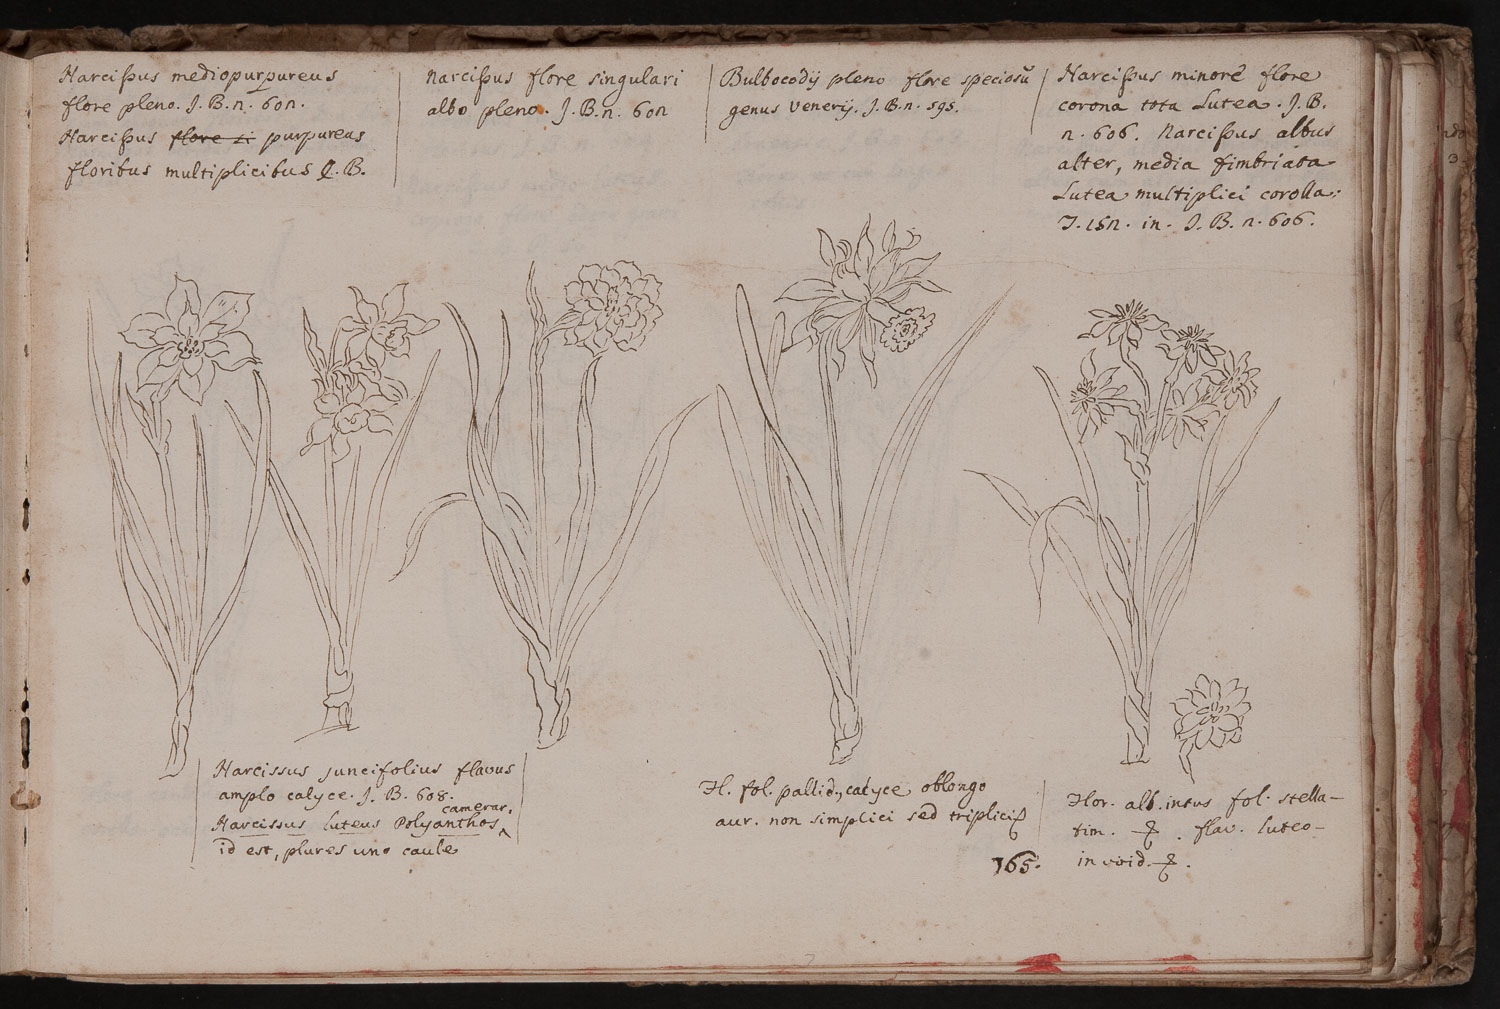 Narcißus mediopurpureus
flore pleno. J. B. n. 60n.
Narcißus flore si purpureus
floribus multiplicibus C. B.
Narcißus flore singulari
albo pleno. J. B. n. 60n
Bulbocodij pleno flore speciosū
genus Venerij. J. B. n. 595.
Narcißus minorē flore
corona tota Lutea. J. B.
n. 606. Narcißus albus
alter, media fimbriata
Lutea multiplici corolla:
in. J. B. n. 606.
Narcissus juncifolius flavus
amplo calyce. J. B. 608.
camerar.
Narcissus luteus Polyanthos
id est, plures uno caule
fl. fol. pallid., calyce oblongo
aur. non simplici sed triplici
165.
Flor. alb. intus fol. stella-
tim. flav. luteo-
in void.